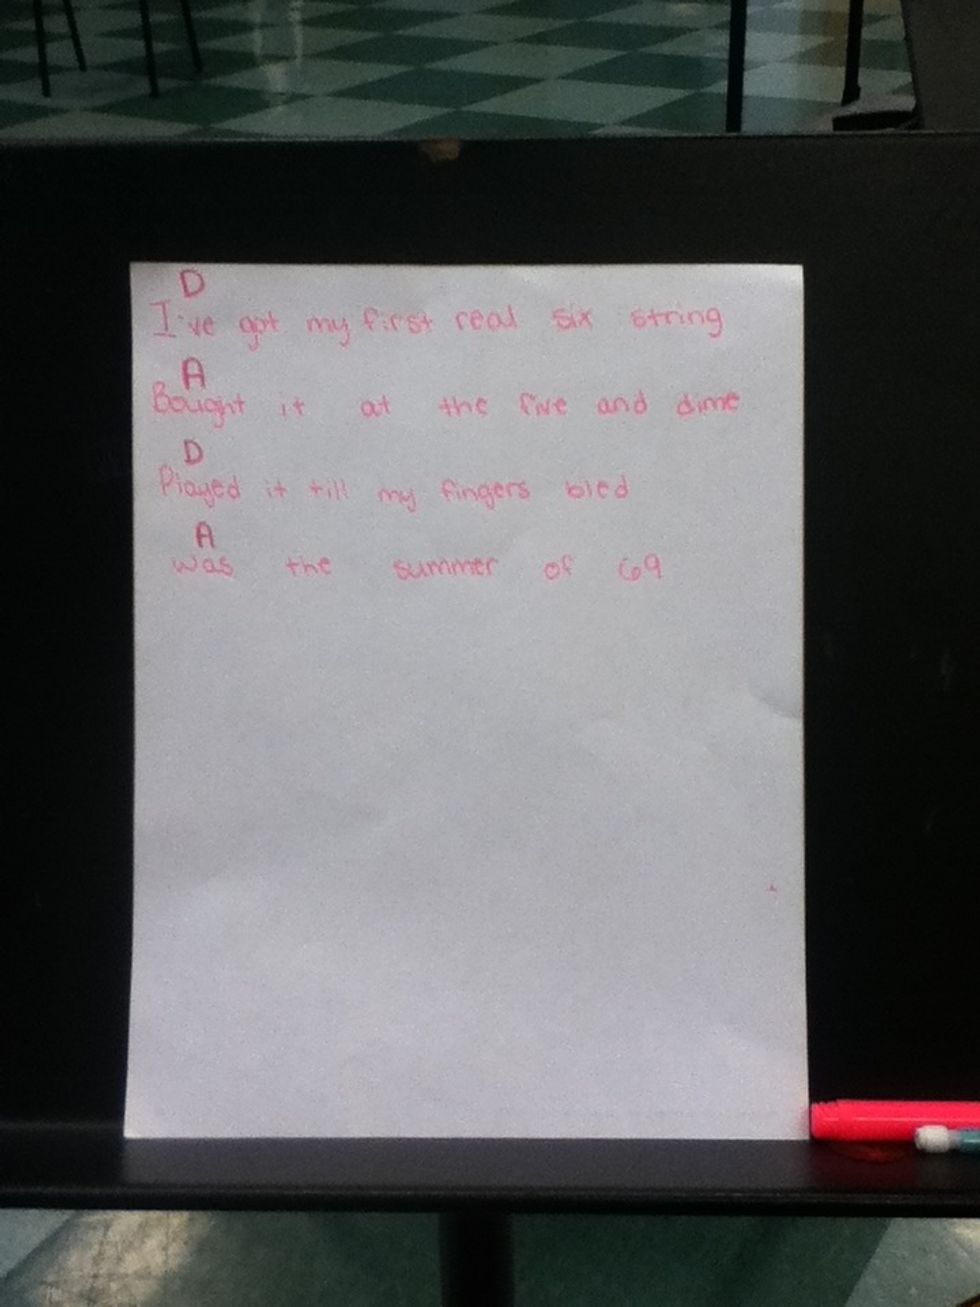 D
I've got my first real six string
A
Bought it at the five and dime
D
Played it till my fingers bled
A
was the summer of 69